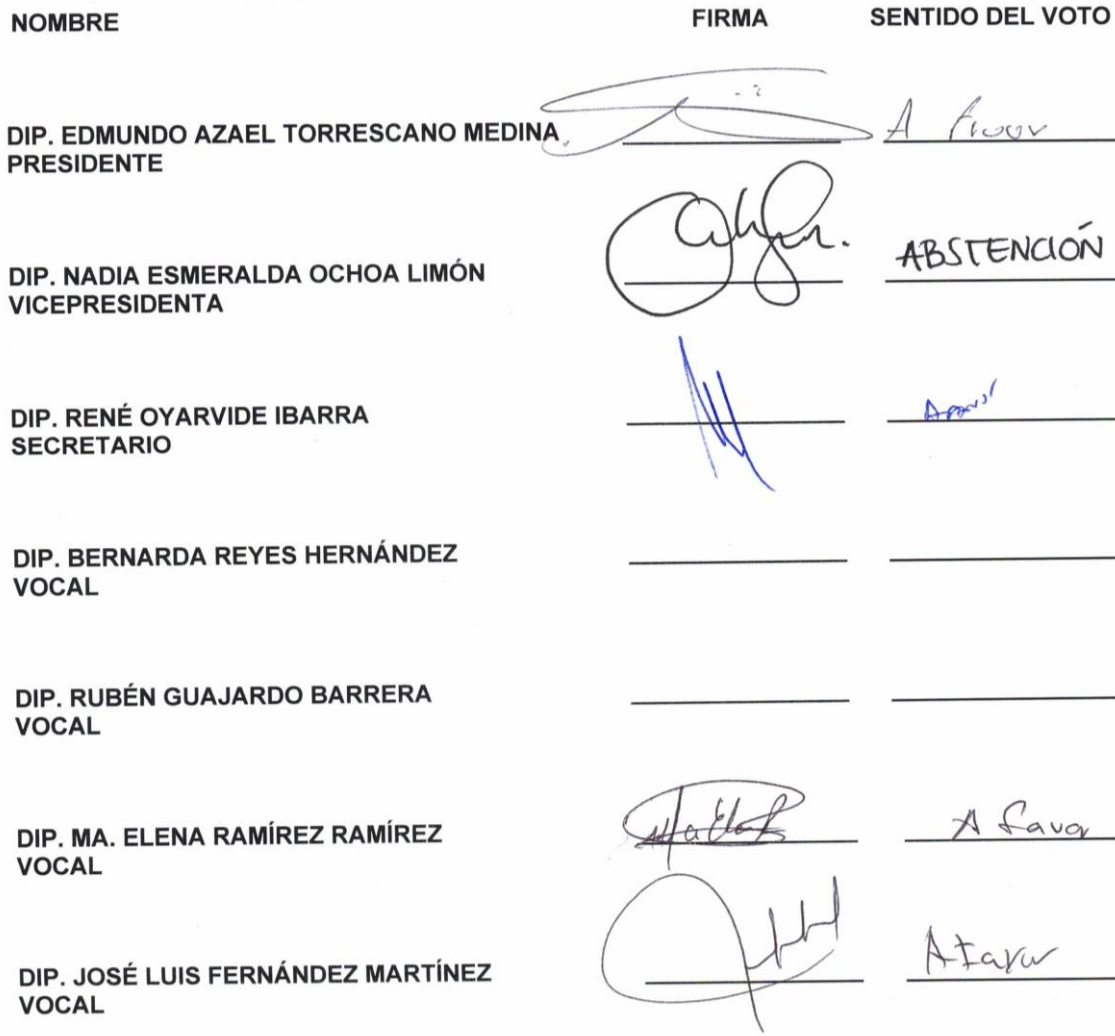 NOMBRE FIRMA SENTIDO DEL VOTO
DIP. EDMUNDO AZAEL TORRESCANO MEDINA A favor
PRESIDENTE
DIP. NADIA ESMERALDA OCHOA LIMÓN ABSTENCIÓN
VICEPRESIDENTA
DIP. RENÉ OYARVIDE IBARRA
SECRETARIO
DIP. BERNARDA REYES HERNÁNDEZ
VOCAL
DIP. RUBÉN GUAJARDO BARRERA
VOCAL
DIP. MA. ELENA RAMÍREZ RAMÍREZ A favor
VOCAL
DIP. JOSÉ LUIS FERNÁNDEZ MARTÍNEZ A favor
VOCAL